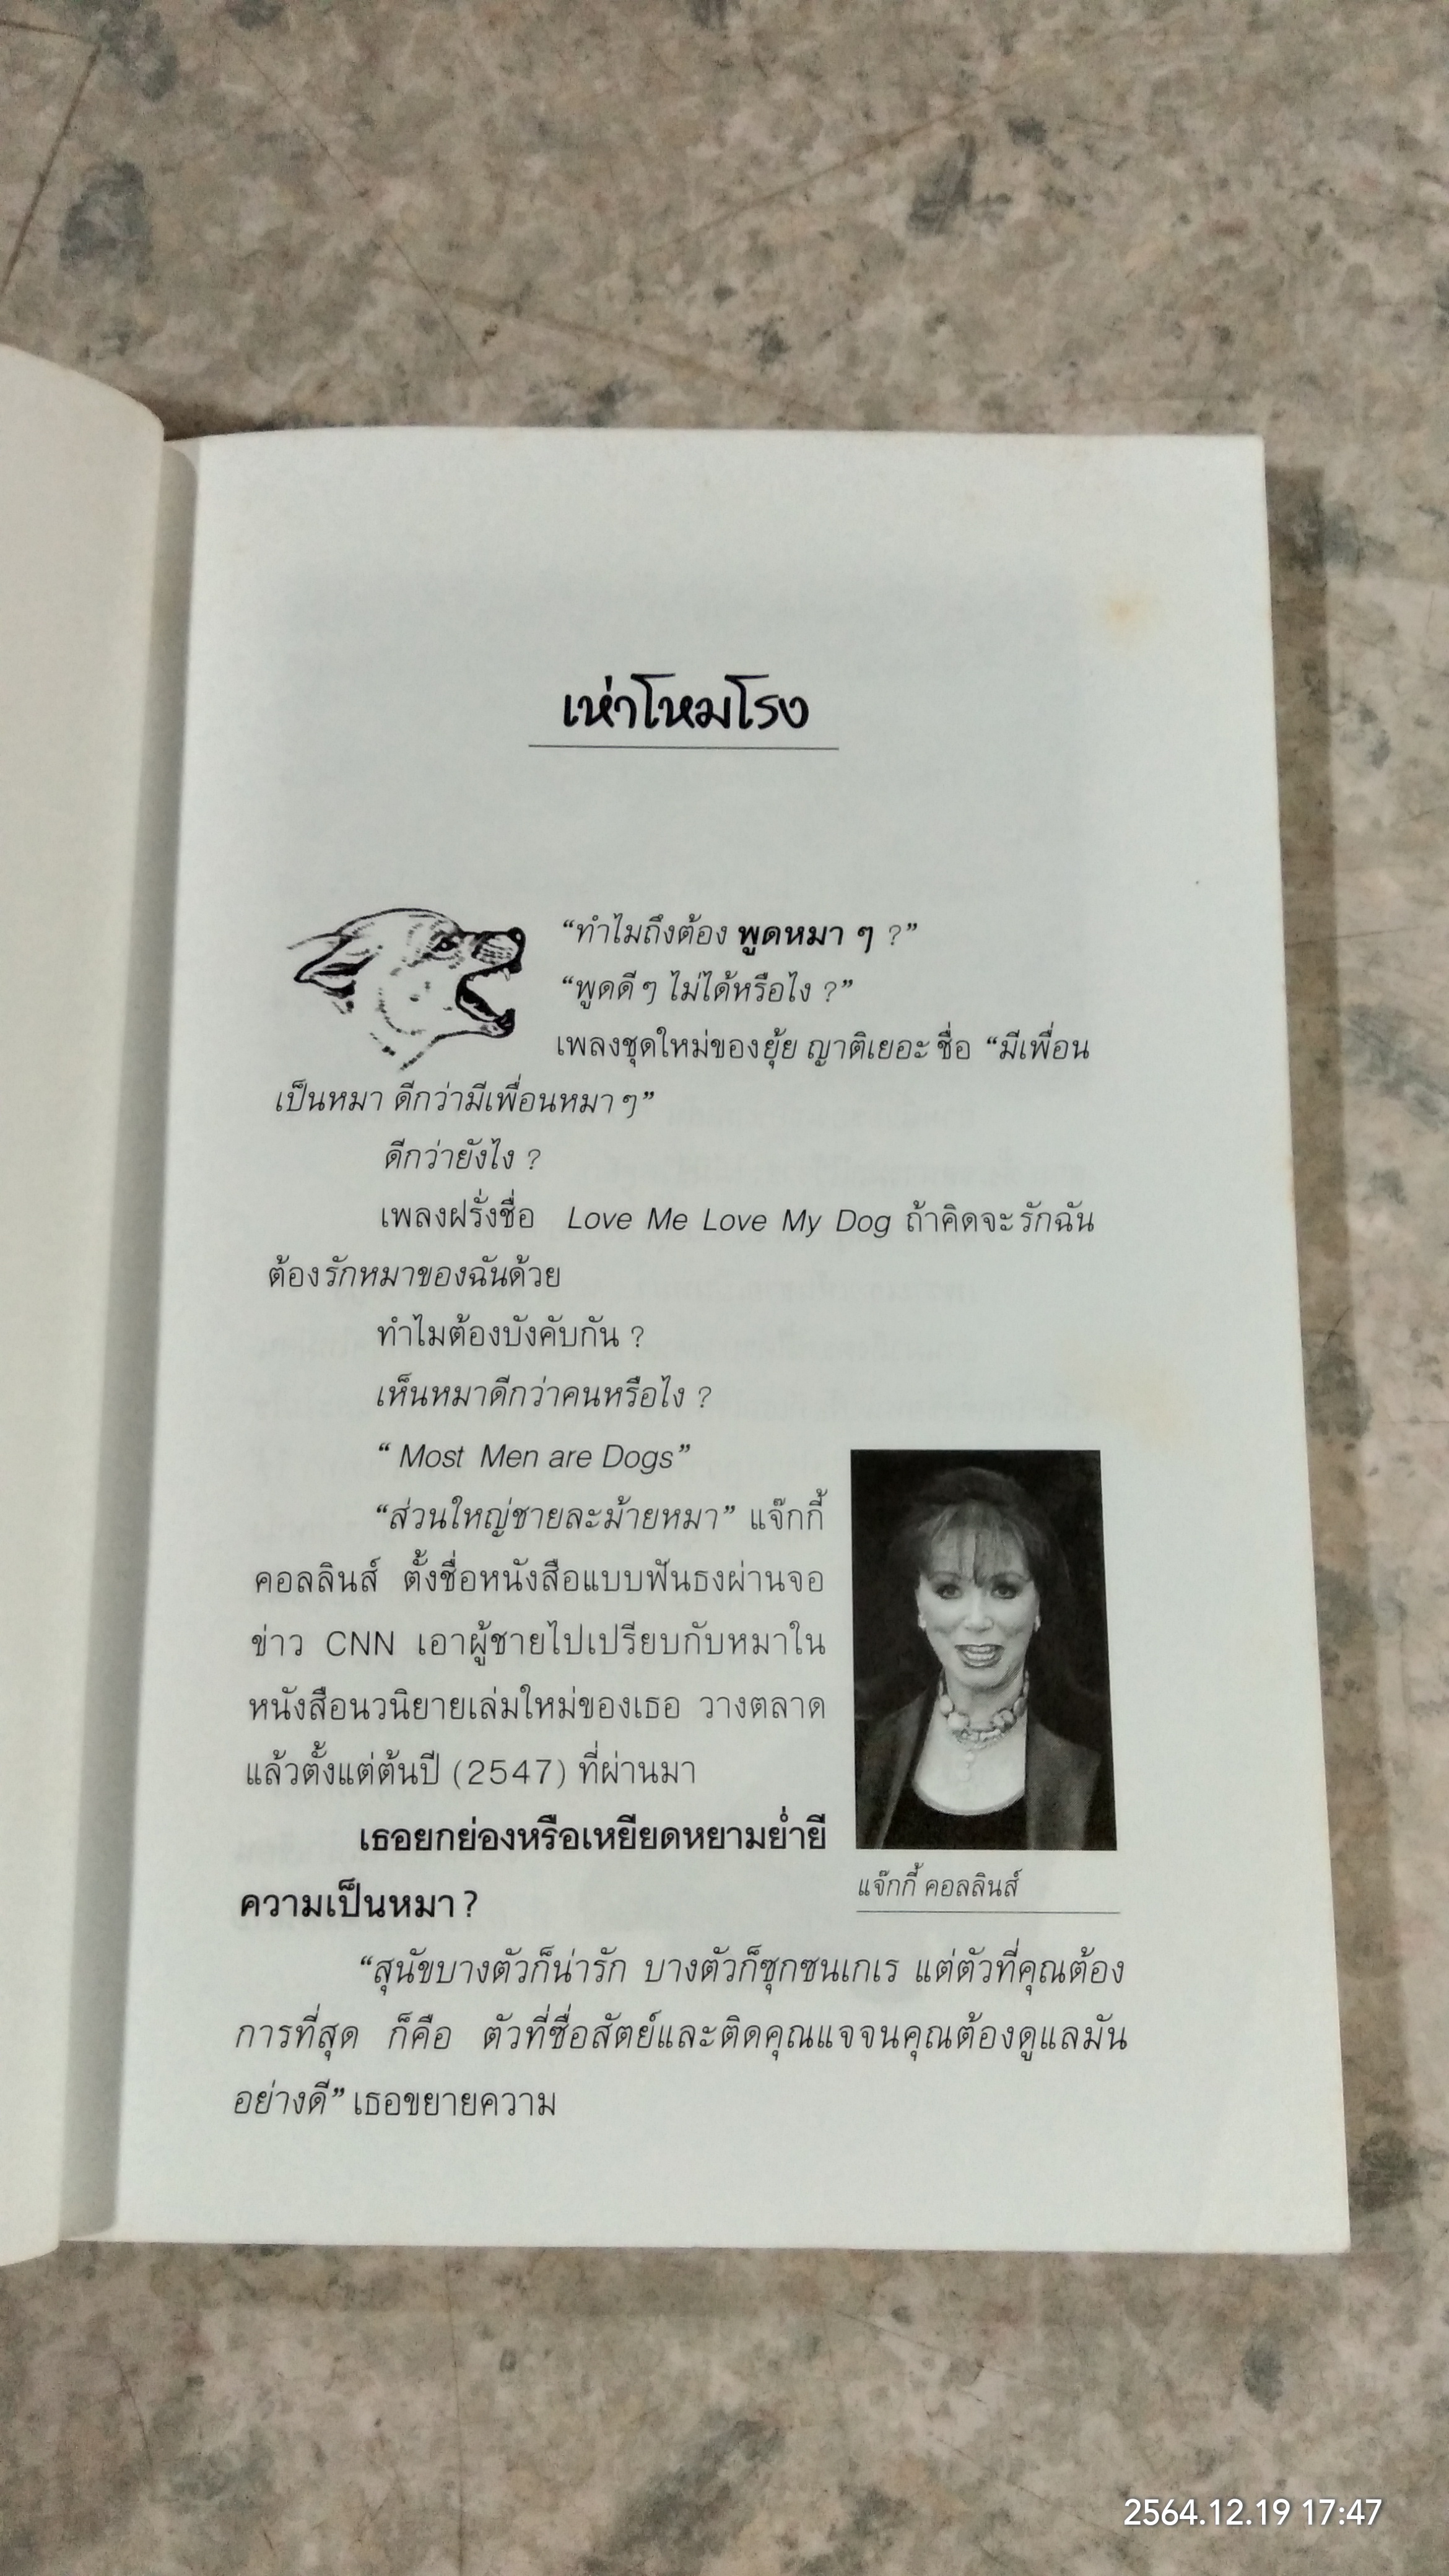 เห่าโหมโรง
“ทำไมถึงต้อง พูดหมา ๆ ?”
“พูดดี ๆ ไม่ได้หรือไง ?”
เพลงชุดใหม่ของยุ้ย ญาติเยอะ ชื่อ “มีเพื่อน
เป็นหมา ดีกว่ามีเพื่อนหมา ๆ”
ดีกว่ายังไง ?
เพลงฝรั่งชื่อ Love Me Love My Dog ถ้าคิดจะรักฉัน
ต้องรักหมาของฉันด้วย
ทำไมต้องบังคับกัน ?
เห็นหมาดีกว่าคนหรือไง ?
“ Most Men are Dogs”
“ส่วนใหญ่ชายละม้ายหมา” แจ๊กกี้
คอลลินส์ ตั้งชื่อหนังสือแบบฟันธงผ่านจอ
ข่าว CNN เอาผู้ชายไปเปรียบกับหมาใน
หนังสือนวนิยายเล่มใหม่ของเธอ วางตลาด
แล้วตั้งแต่ต้นปี (2547) ที่ผ่านมา
เธอยกย่องหรือเหยียดหยามย่ำยี
ความเป็นหมา ?
แจ๊กกี้ คอลลินส์
“สุนัขบางตัวก็น่ารัก บางตัวก็ซุกซนเกเร แต่ตัวที่คุณต้อง
การที่สุด ก็คือ ตัวที่ซื่อสัตย์และติดคุณแจจนคุณต้องดูแลมัน
อย่างดี” เธอขยายความ
2564.12.19 17:47